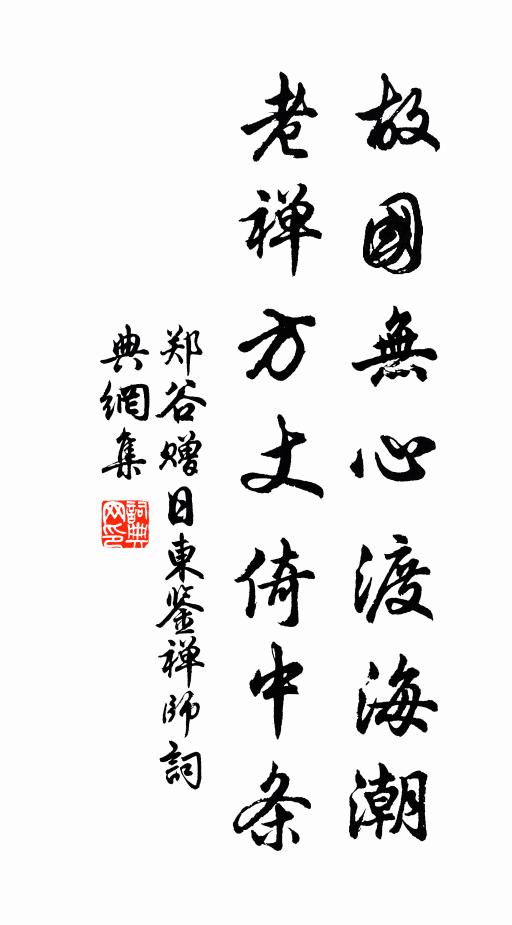 故國無心渡海潮
老禅方丈倚中条
郑谷赠日東鉴禅師詞
典網集
詞典网印